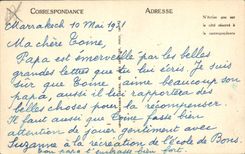 CORRESPONDANCE
ADRESSE
N'écrire que sur
le côté réservé à
la correspondance
Marrakech 10 Mai 1931
Ma chère Toine,
Papa est émerveillé par les belles
grandes lettres que tu lui écris. Je suis
sûr que Toine aime beaucoup son
papa, aussi il lui rapportera des
belles choses pour la récompenser.
Il faut aussi que Toine fasse bien
attention de jouer gentiment avec
Suzanne à la récréation de l'école de Bons.
Ton papa t'embrasse bien fort.